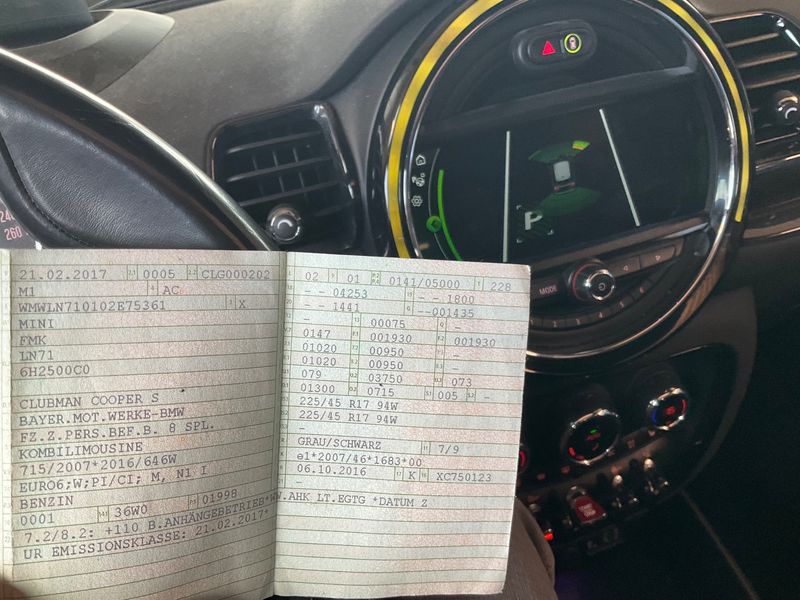 P
MODE
240
260
21.02.2017 2.1 0005 2.2 CLG000202
M1 4 AC
WMWLN710102E75361 3 X
MINI
FMK
LN71
6H2500C0
CLUBMAN COOPER S
BAYER.MOT.WERKE-BMW
FZ.Z.PERS.BEF.B. 8 SPL.
KOMBILIMOUSINE
715/2007*2016/646W
EURO6;W;PI/CI; M, N1 I
BENZIN
0001 36W0 01998
7.2/8.2: +110 B.ANHÄNGEBETRIEB*WW.AHK LT.EGTG *DATUM Z
UR EMISSIONSKLASSE: 21.02.2017*
02 01 0141/05000 228
- - 04253 - - 1800
- - 1441 --001435
- 00075 -
0147 001930 001930
01020 00950 -
01020 00950 -
079 03750 073
01300 0715 005 -
225/45 R17 94W
225/45 R17 94W
-
GRAU/SCHWARZ 7/9
e1*2007/46*1683*00
06.10.2016 K XC750123
-